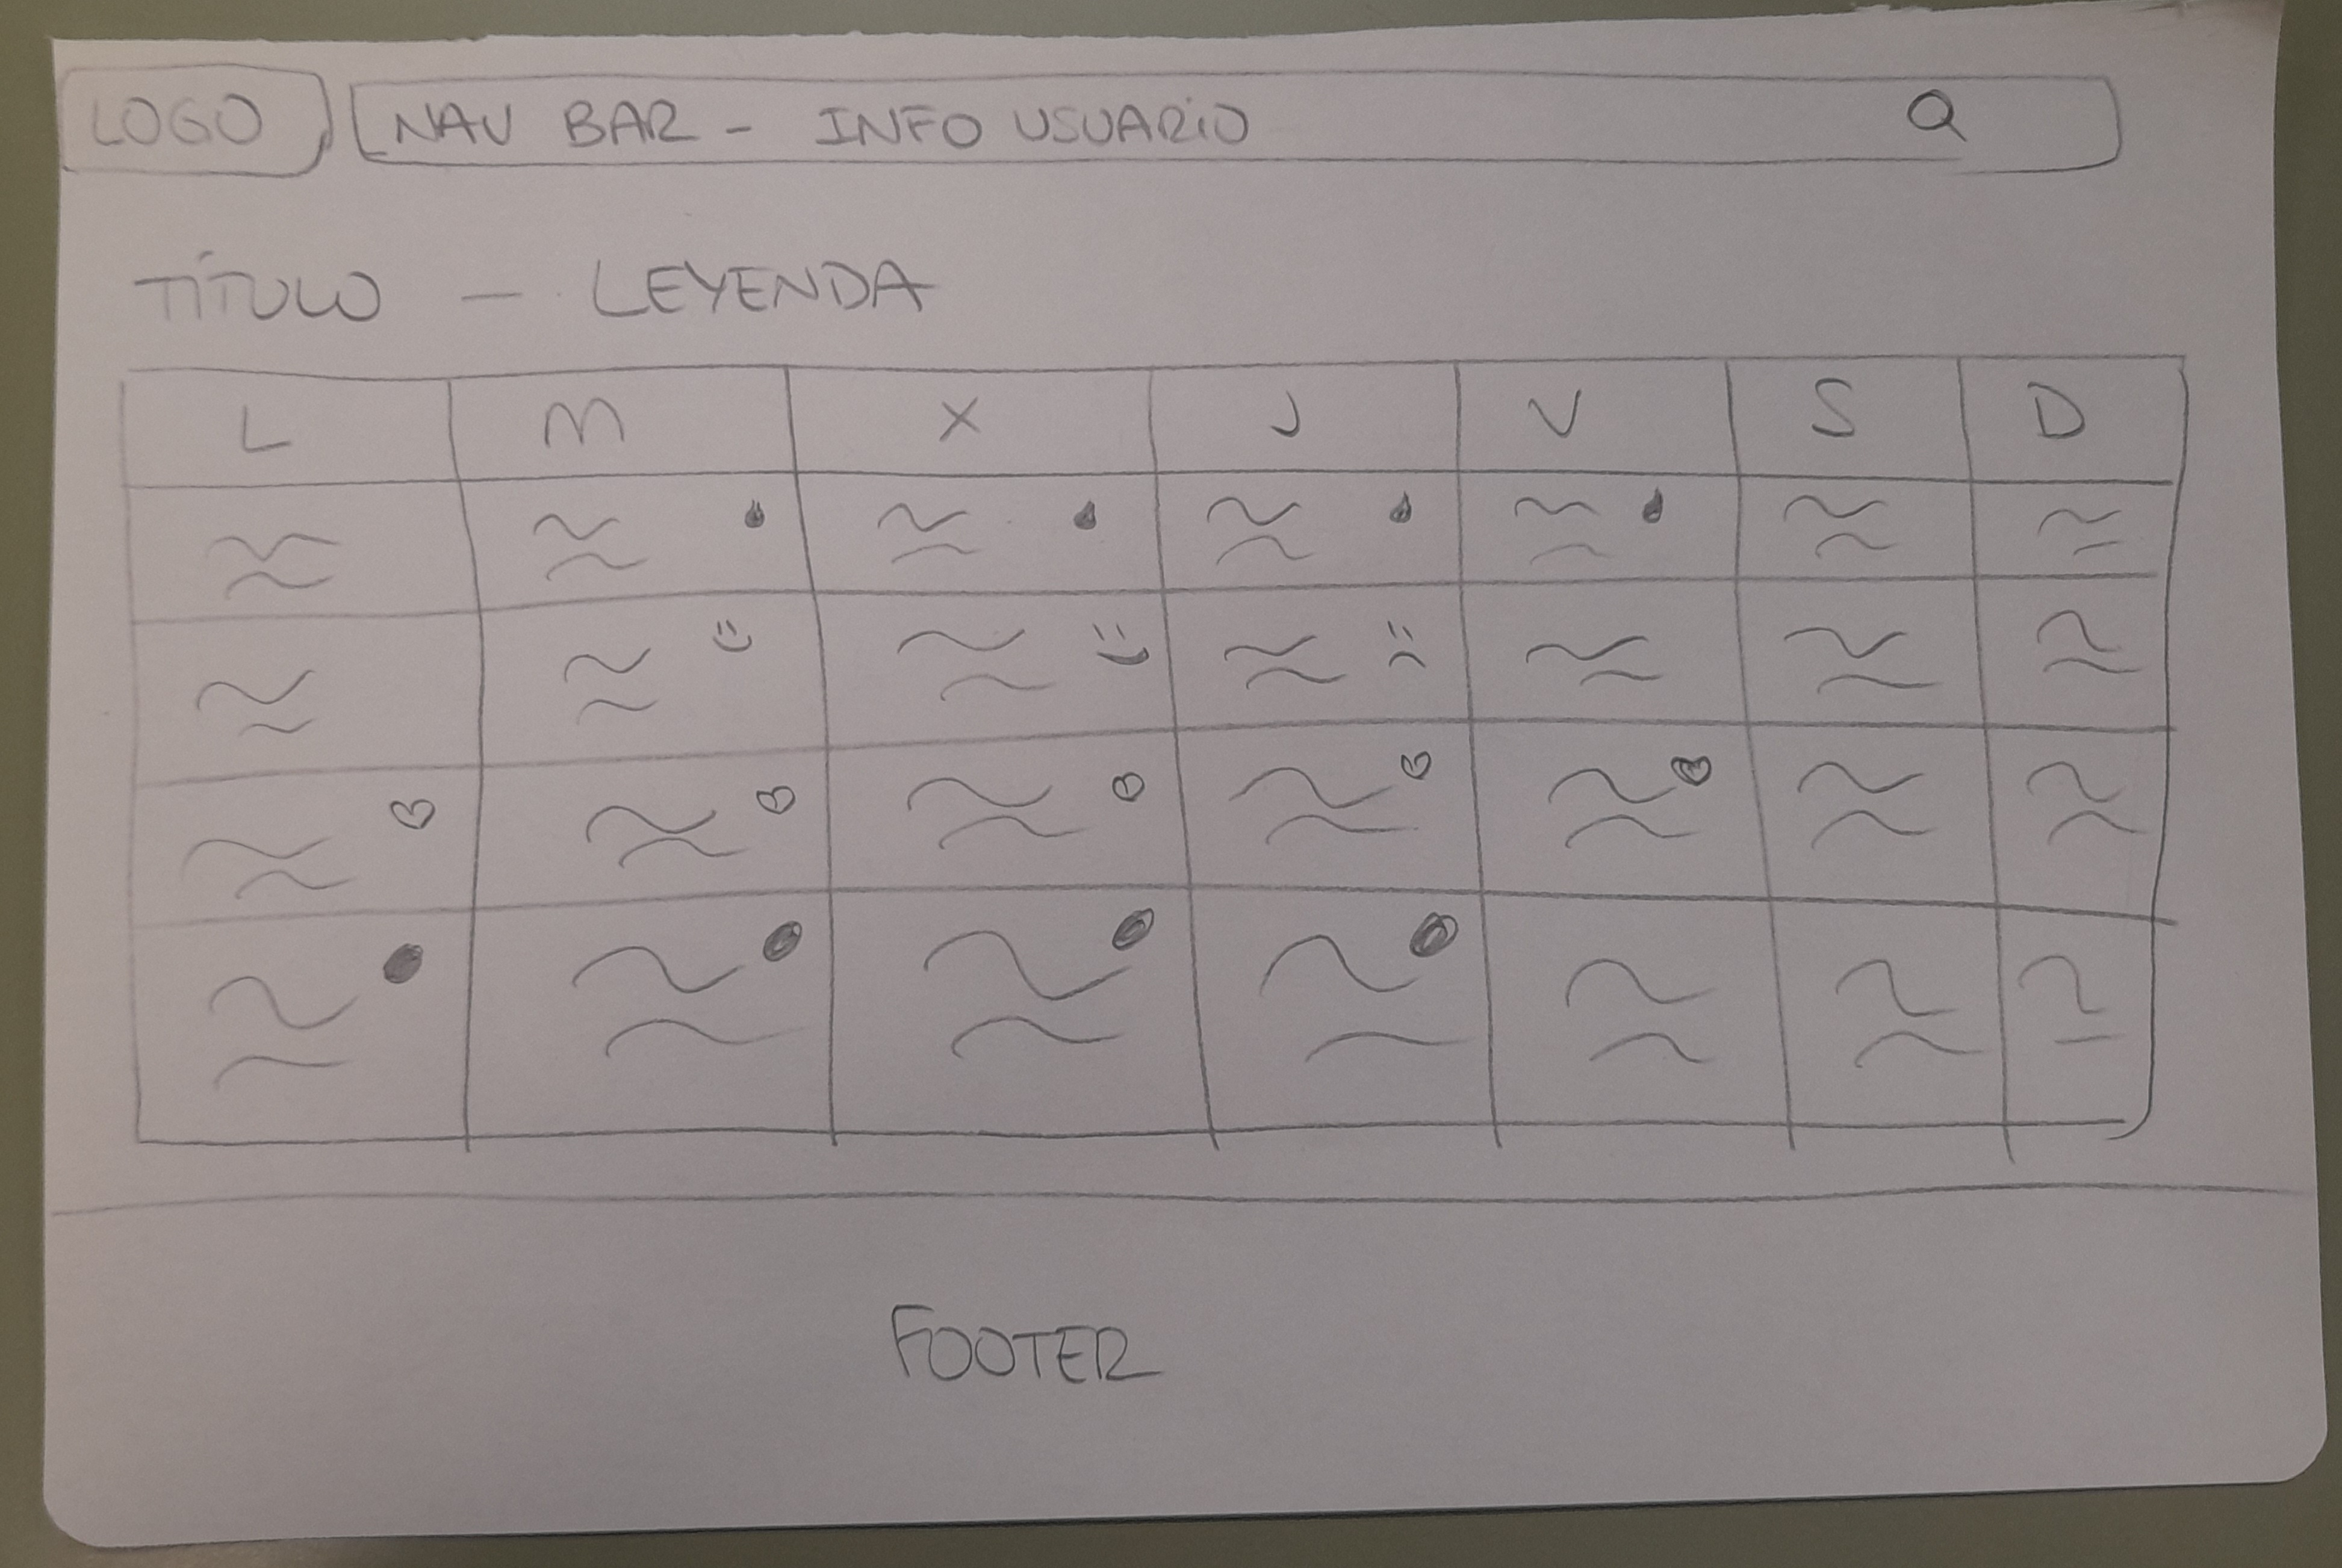 LOGO NAV BAR - INFO USUARIO
TÍTULO — LEYENDA
L M X J V S D
FOOTER